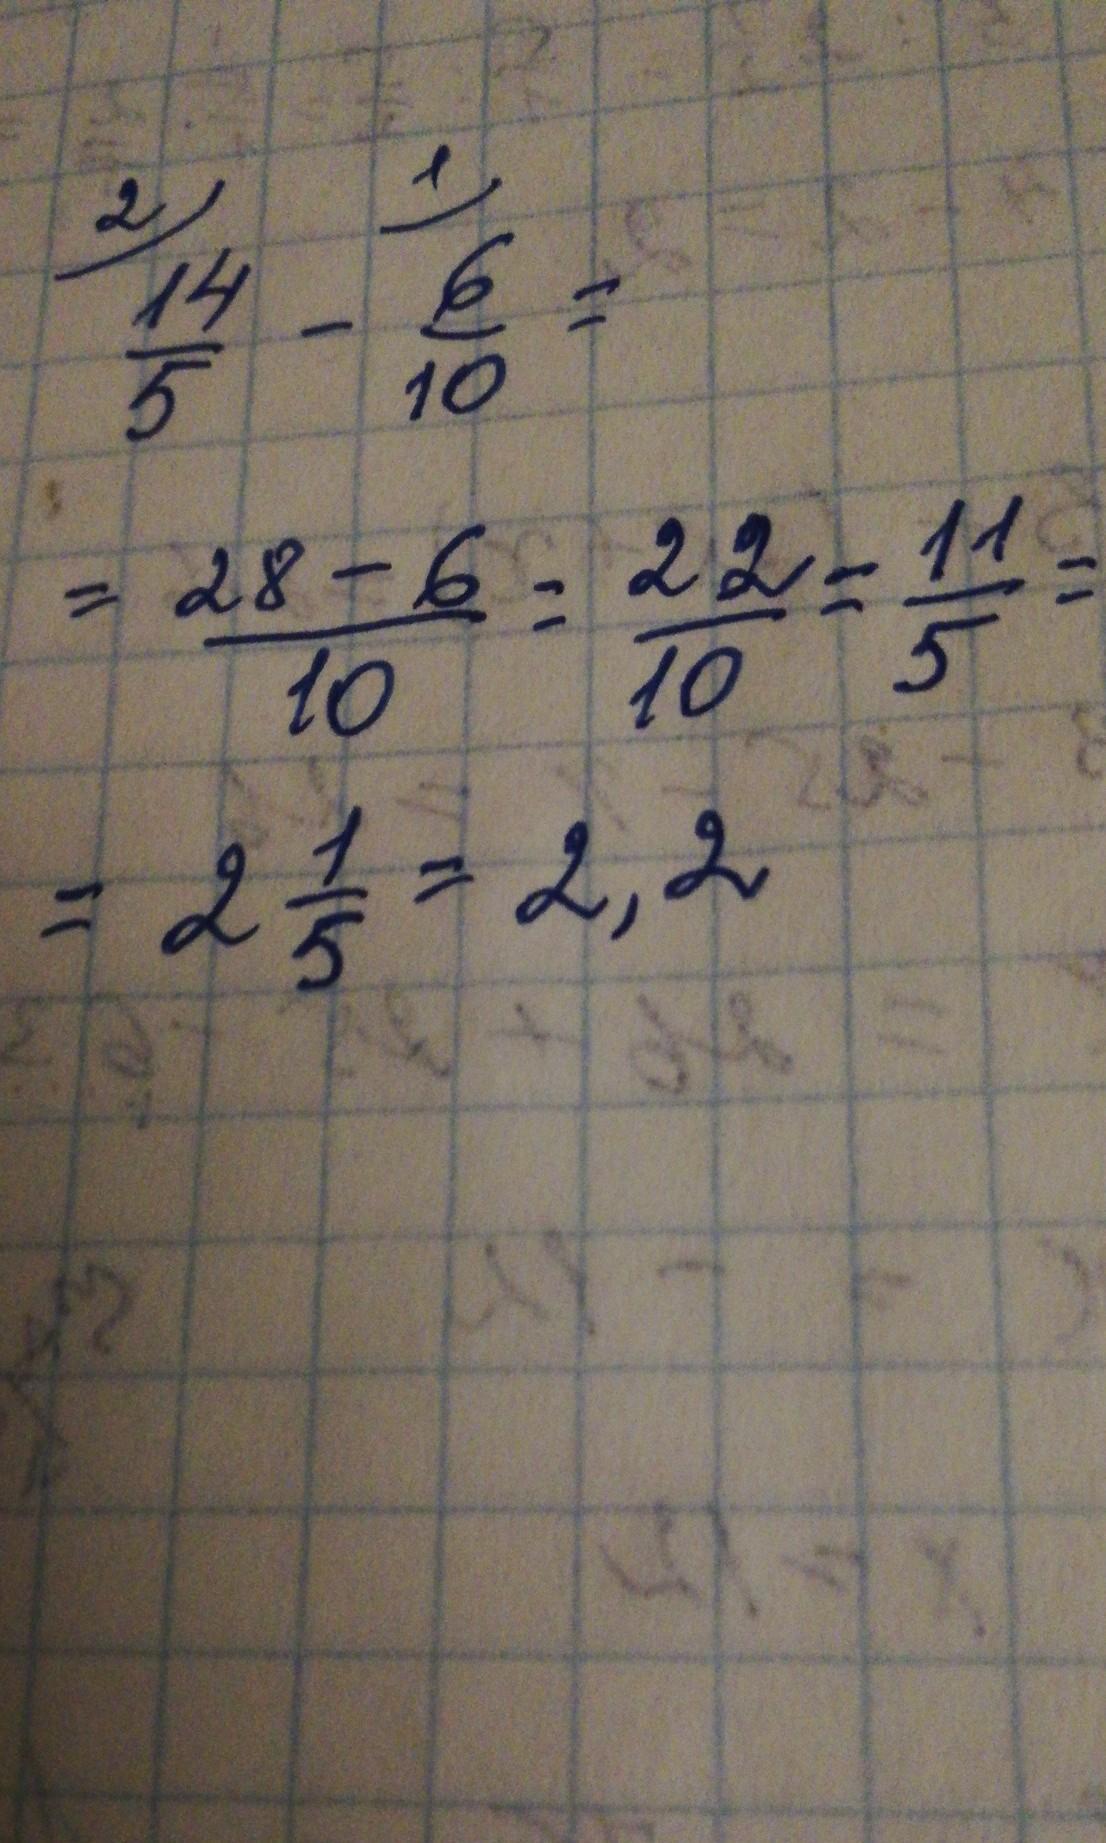 2 1
14/5 - 6/10 =
= 28 - 6/10 = 22/10 = 11/5 =
= 2 1/5 = 2,2